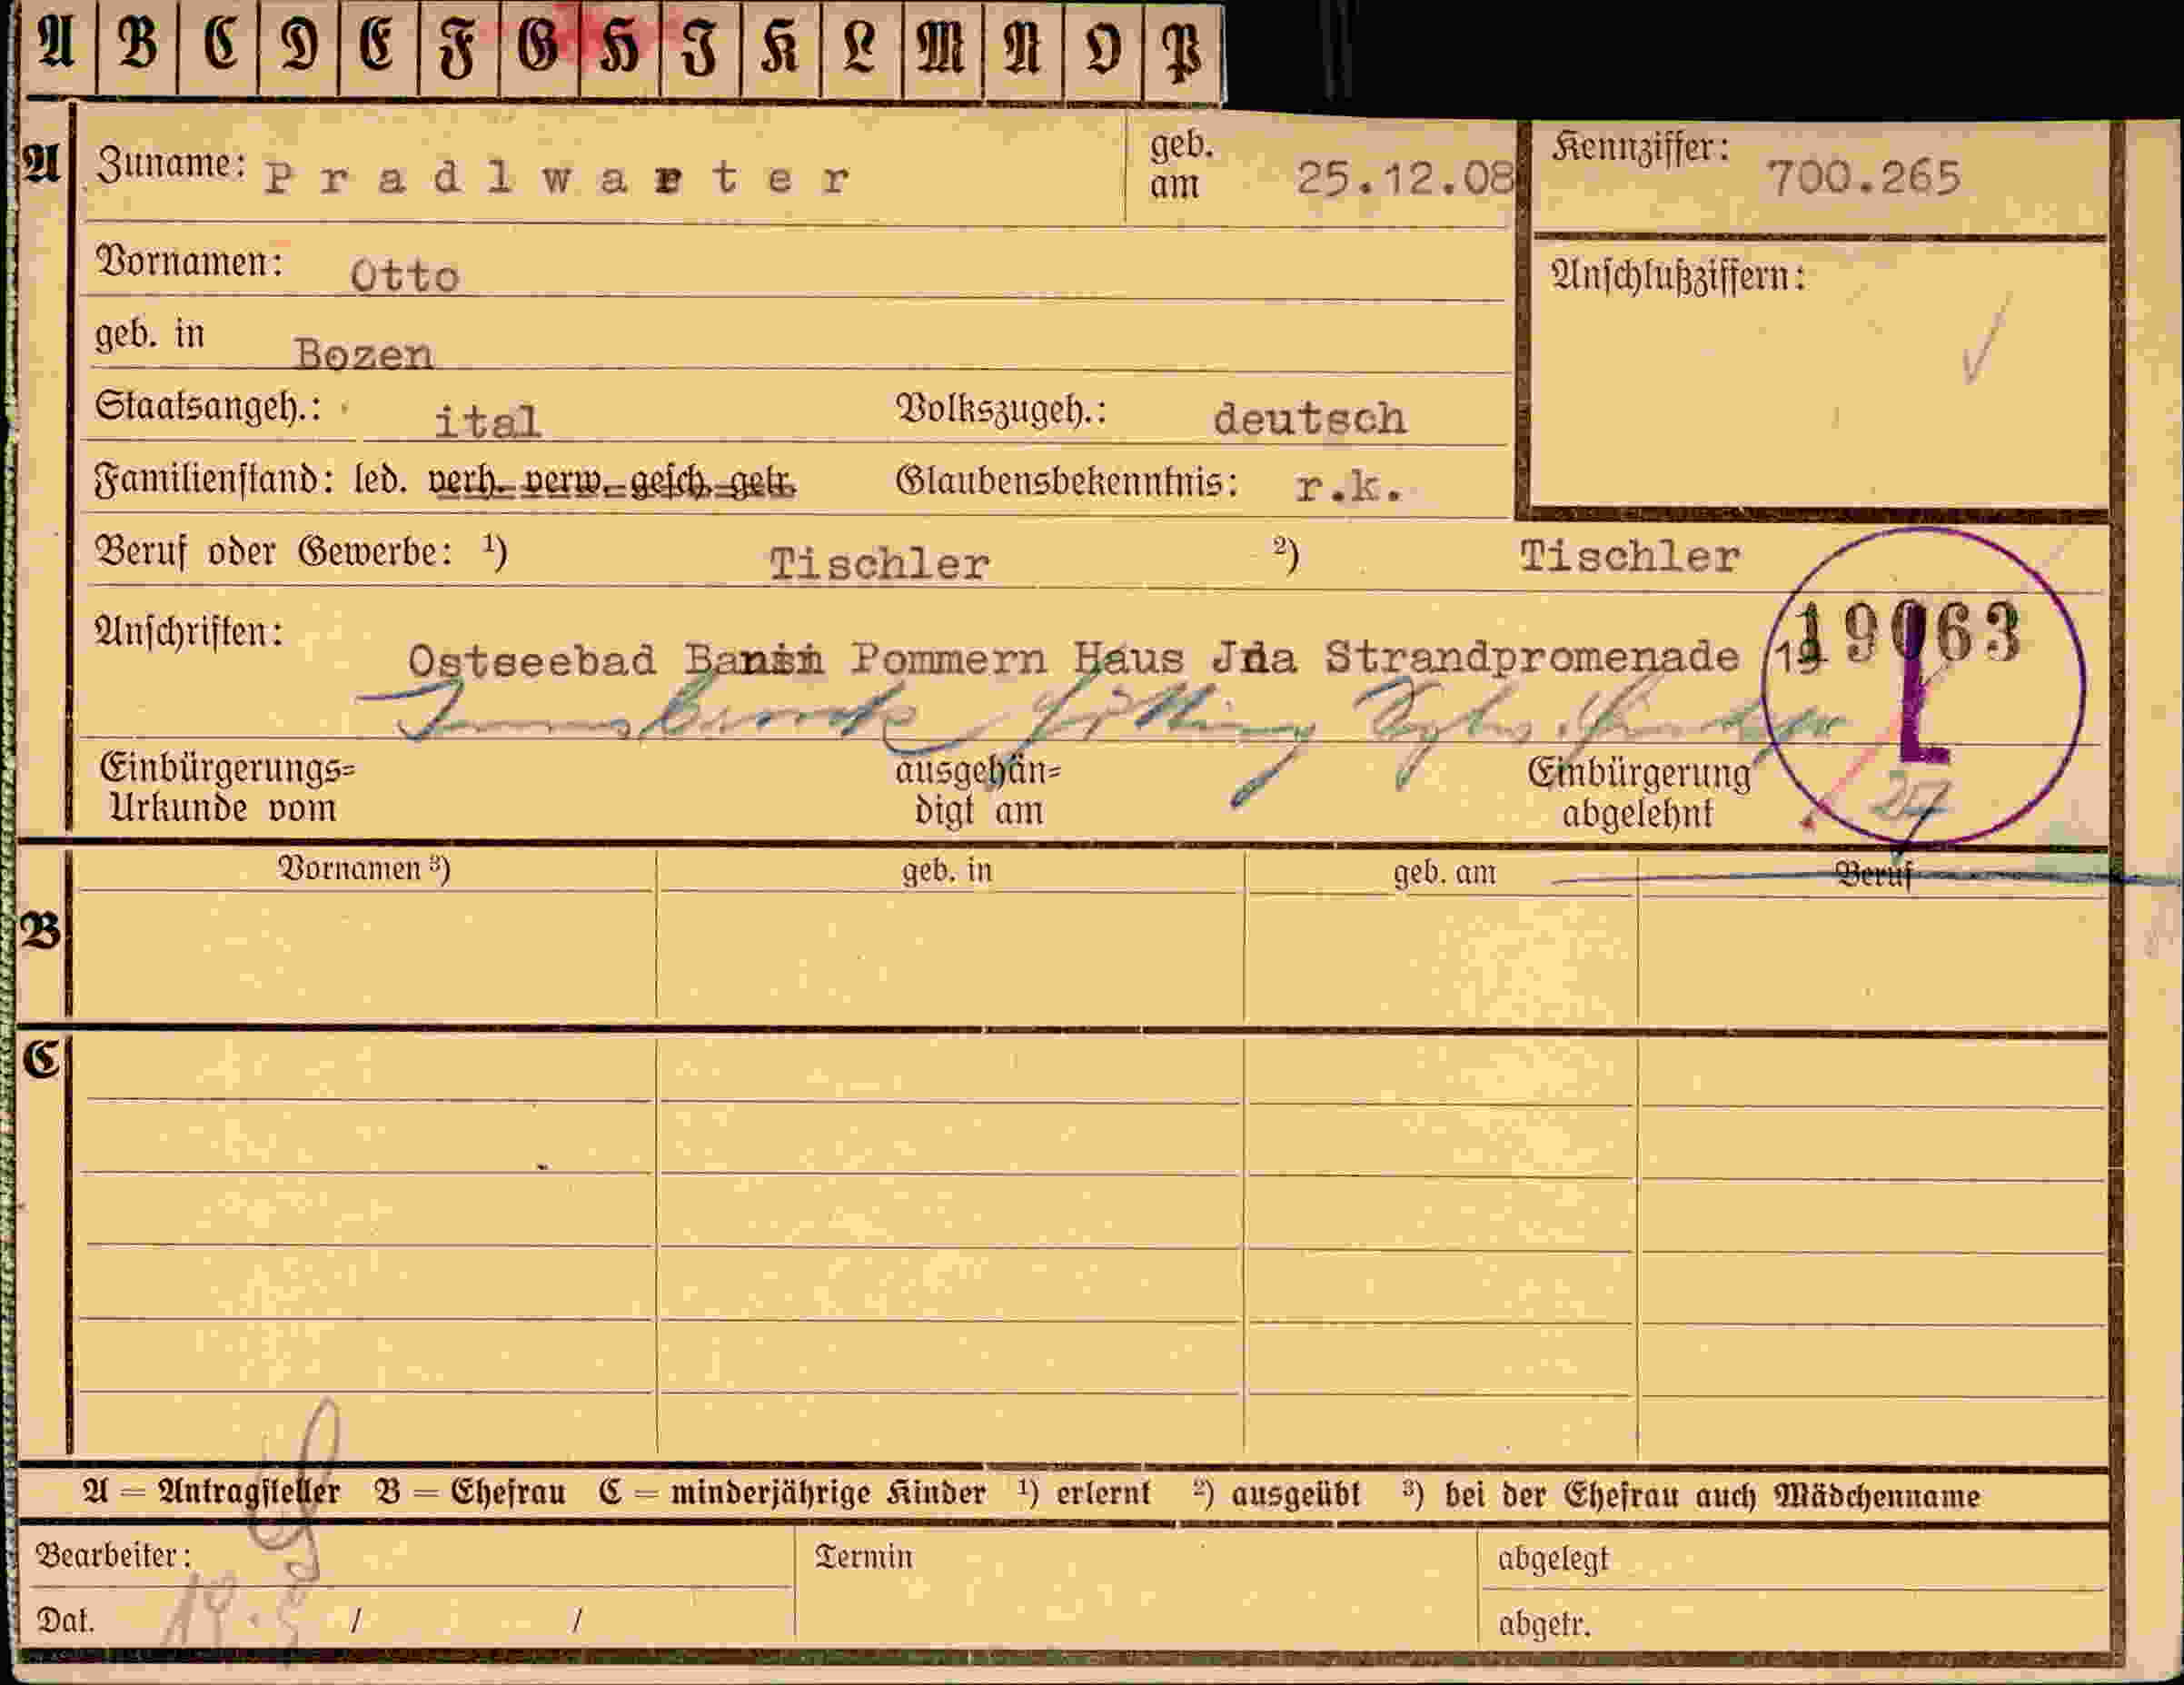 A B C D E F G H J K L M N O P
A Zuname: Pradlwarter geb. am 25.12.08 Kennziffer: 700.265
Vornamen: Otto Anschlußziffern:
geb. in Bozen
Staatsangeh.: ital Volkszugeh.: deutsch
Familienstand: led. verh. verw. gesch. getr. Glaubensbekenntnis: r.k.
Beruf oder Gewerbe: ¹) Tischler ²) Tischler
Anschriften: Ostseebad Bansin Pommern Haus Jda Strandpromenade 19063
L
Innsbruck
Einbürgerungs= ausgehän= Einbürgerung
Urkunde vom digt am abgelehnt 27
Vornamen ³) geb. in geb. am Beruf
B
C
A = Antragsteller B = Ehefrau C = minderjährige Kinder ¹) erlernt ²) ausgeübt ³) bei der Ehefrau auch Mädchenname
Bearbeiter: Termin abgelegt
Dat. / / abgetr.